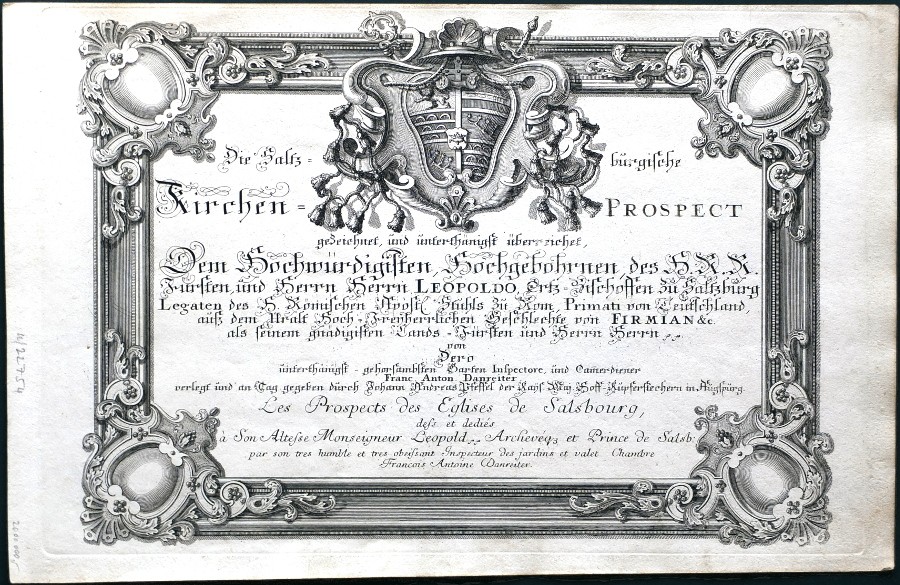 Die Saltz= bürgische
Kirchen= PROSPECT
gezeichnet, und ünterthänigst überreichet,
Dem Hochwürdigisten, Hochgebohrnen des H. R. R.
Fürsten, und Herrn Herrn LEOPOLDO, Ertz-Bischoffen zu Saltzburg
Legaten des H. Römischen Apostl: Stuhls zu Rom, Primati von Teutschland,
auß dem Uralt Hoch-Freyherrlichen Geschlechte von FIRMIAN &c.
als seinem gnädigisten Lands-Fürsten und Herrn Herrn
von
Dero
ünterthänigst-gehorsambsten Garten Inspectore, und Camerdiener
Franc. Anton Danreiter
verlegt und an Tag gegeben dürch Johann Andreas Pfeffel der Kaÿs. Maj. Hoff-Küpferstechern in Aügspürg.
Les Prospects des Eglises de Salsbourg,
dess et dediés
à Son Altesse Monseigneur Leopold Archevéq3 et Prince de Salsb:
par son tres humble et tres obeissant Inspecteur des jardins et valet Chambre
François Antoine Danreiter.